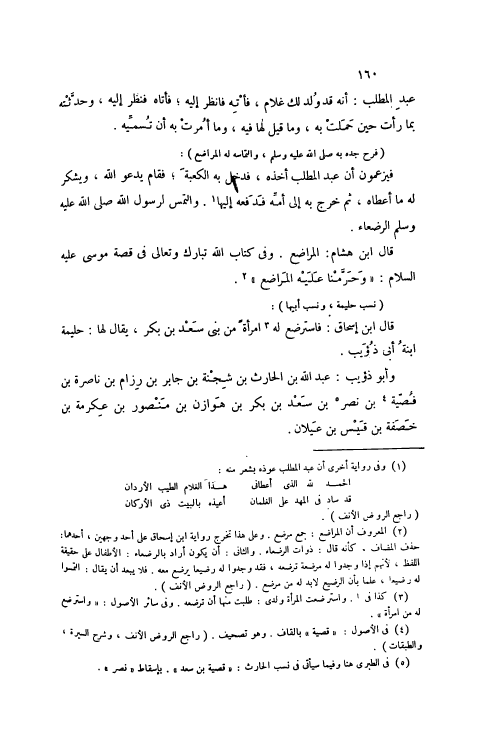 ١٦٠
عبد المطلب : أنه قد وُلد لك غلام ، فأْتِه فانظر إليه ؛ فأتاه فنظر إليه ، وحدَّثتْه
بما رأت حين حَمَلتْ به ، وما قيل لها فيه ، وما أُمرتْ به أن تُسمِّيه .
( فرح جده به صلى الله عليه وسلم ، والتماسه له المراضع ) :
فيزعمون أن عبد المطلب أخذه ، فدخل به الكعبة ؛ فقام يدعو الله ، ويشكر
له ما أعطاه ، ثم خرج به إلى أمِّه فدَفعه إليها١ . والتمس لرسول الله صلى الله عليه
وسلم الرضعاء .
قال ابن هشام: المراضع . وفى كتاب الله تبارك وتعالى فى قصة موسى عليه
السلام : « وَحَرَّمْنا عَلَيْه المَرَاضع » ٢ .
( نسب حليمة ، ونسب أبيها ) :
قال ابن إسحاق : فاسترضع له ٣ امرأة من بنى سَعْد بن بكر ، يقال لها : حليمة
ابنةُ أبى ذُؤَيب .
وأبو ذؤيب : عبد الله بن الحارث بن شِجْنة بن جابر بن رِزام بن ناصرة بن
فُصَيَّة ٤ بن نصر ٥ بن سَعْد بن بكر بن هَوازن بن مَنْصور بن عِكرمة بن
خَصَفة بن قَيْس بن عَيلان .
(١) وفى رواية أخرى أن عبد المطلب عوذه بشعر منه :
الحمد لله الذى أعطانى هذا الغلام الطيب الأردان
قد ساد فى المهد على الغلمان أعيذه بالبيت ذى الأركان
( راجع الروض الأنف ) .
(٢) المعروف أن المراضع : جمع مرضع . وعلى هذا تخرج رواية ابن إسحاق على أحد وجهين ، أحدهما:
حذف المضاف . كأنه قال : ذوات الرضعاء . والثانى : أن يكون أراد بالرضعاء : الأطفال على حقيقة
اللفظ ، لأنهم إذا وجدوا له مرضعة ترضعه ، فقد وجدوا له رضيعا يرضع معه . فلا يبعد أن يقال : التمسوا
له رضيعا ، علما بأن الرضيع لابد له من مرضع . ( راجع الروض الأنف ) .
(٣) كذا فى ا . واسترضعت المرأة ولدى : طلبت منها أن ترضعه . وفى سائر الأصول : « واسترضع
له من امرأة » .
(٤) فى الأصول : « قصية » بالقاف . وهو تصحيف . ( راجع الروض الأنف ، وشرح السيرة ،
والطبقات ) .
(٥) فى الطبرى هنا وفيما سيأتى فى نسب الحارث : « قصية بن سعد » . بإسقاط « نصر » .